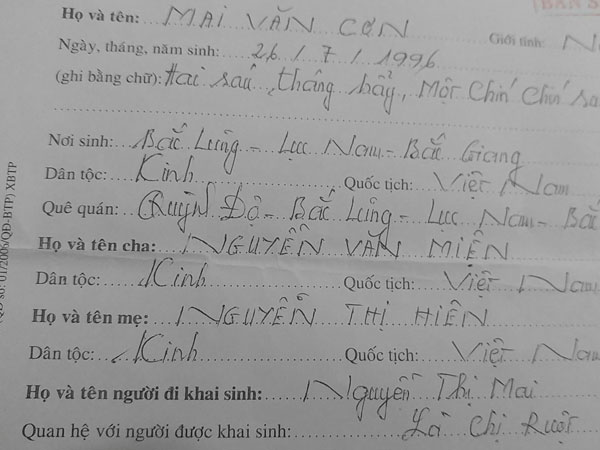 BẢN S
Họ và tên: MAI VĂN CƠN Giới tính: N
Ngày, tháng, năm sinh: 26 / 7 / 1996
(ghi bằng chữ): Hai sáu, tháng bẩy, Một Chín Chín sá
Nơi sinh: Bắc Lũng - Lục Nam - Bắc Giang
Dân tộc: Kinh Quốc tịch: Việt Nam
Quê quán: Quỳnh Độ - Bắc Lũng - Lục Nam - Bắc
Họ và tên cha: NGUYỄN VĂN MIỆN
Dân tộc: Kinh Quốc tịch: Việt Nam
Họ và tên mẹ: NGUYỄN THỊ HIÊN
Dân tộc: Kinh Quốc tịch: Việt Nam
Họ và tên người đi khai sinh: Nguyễn Thị Mai
Quan hệ với người được khai sinh: Là Chị Ruột
số: 01/2006/QĐ-BTP) XBTP